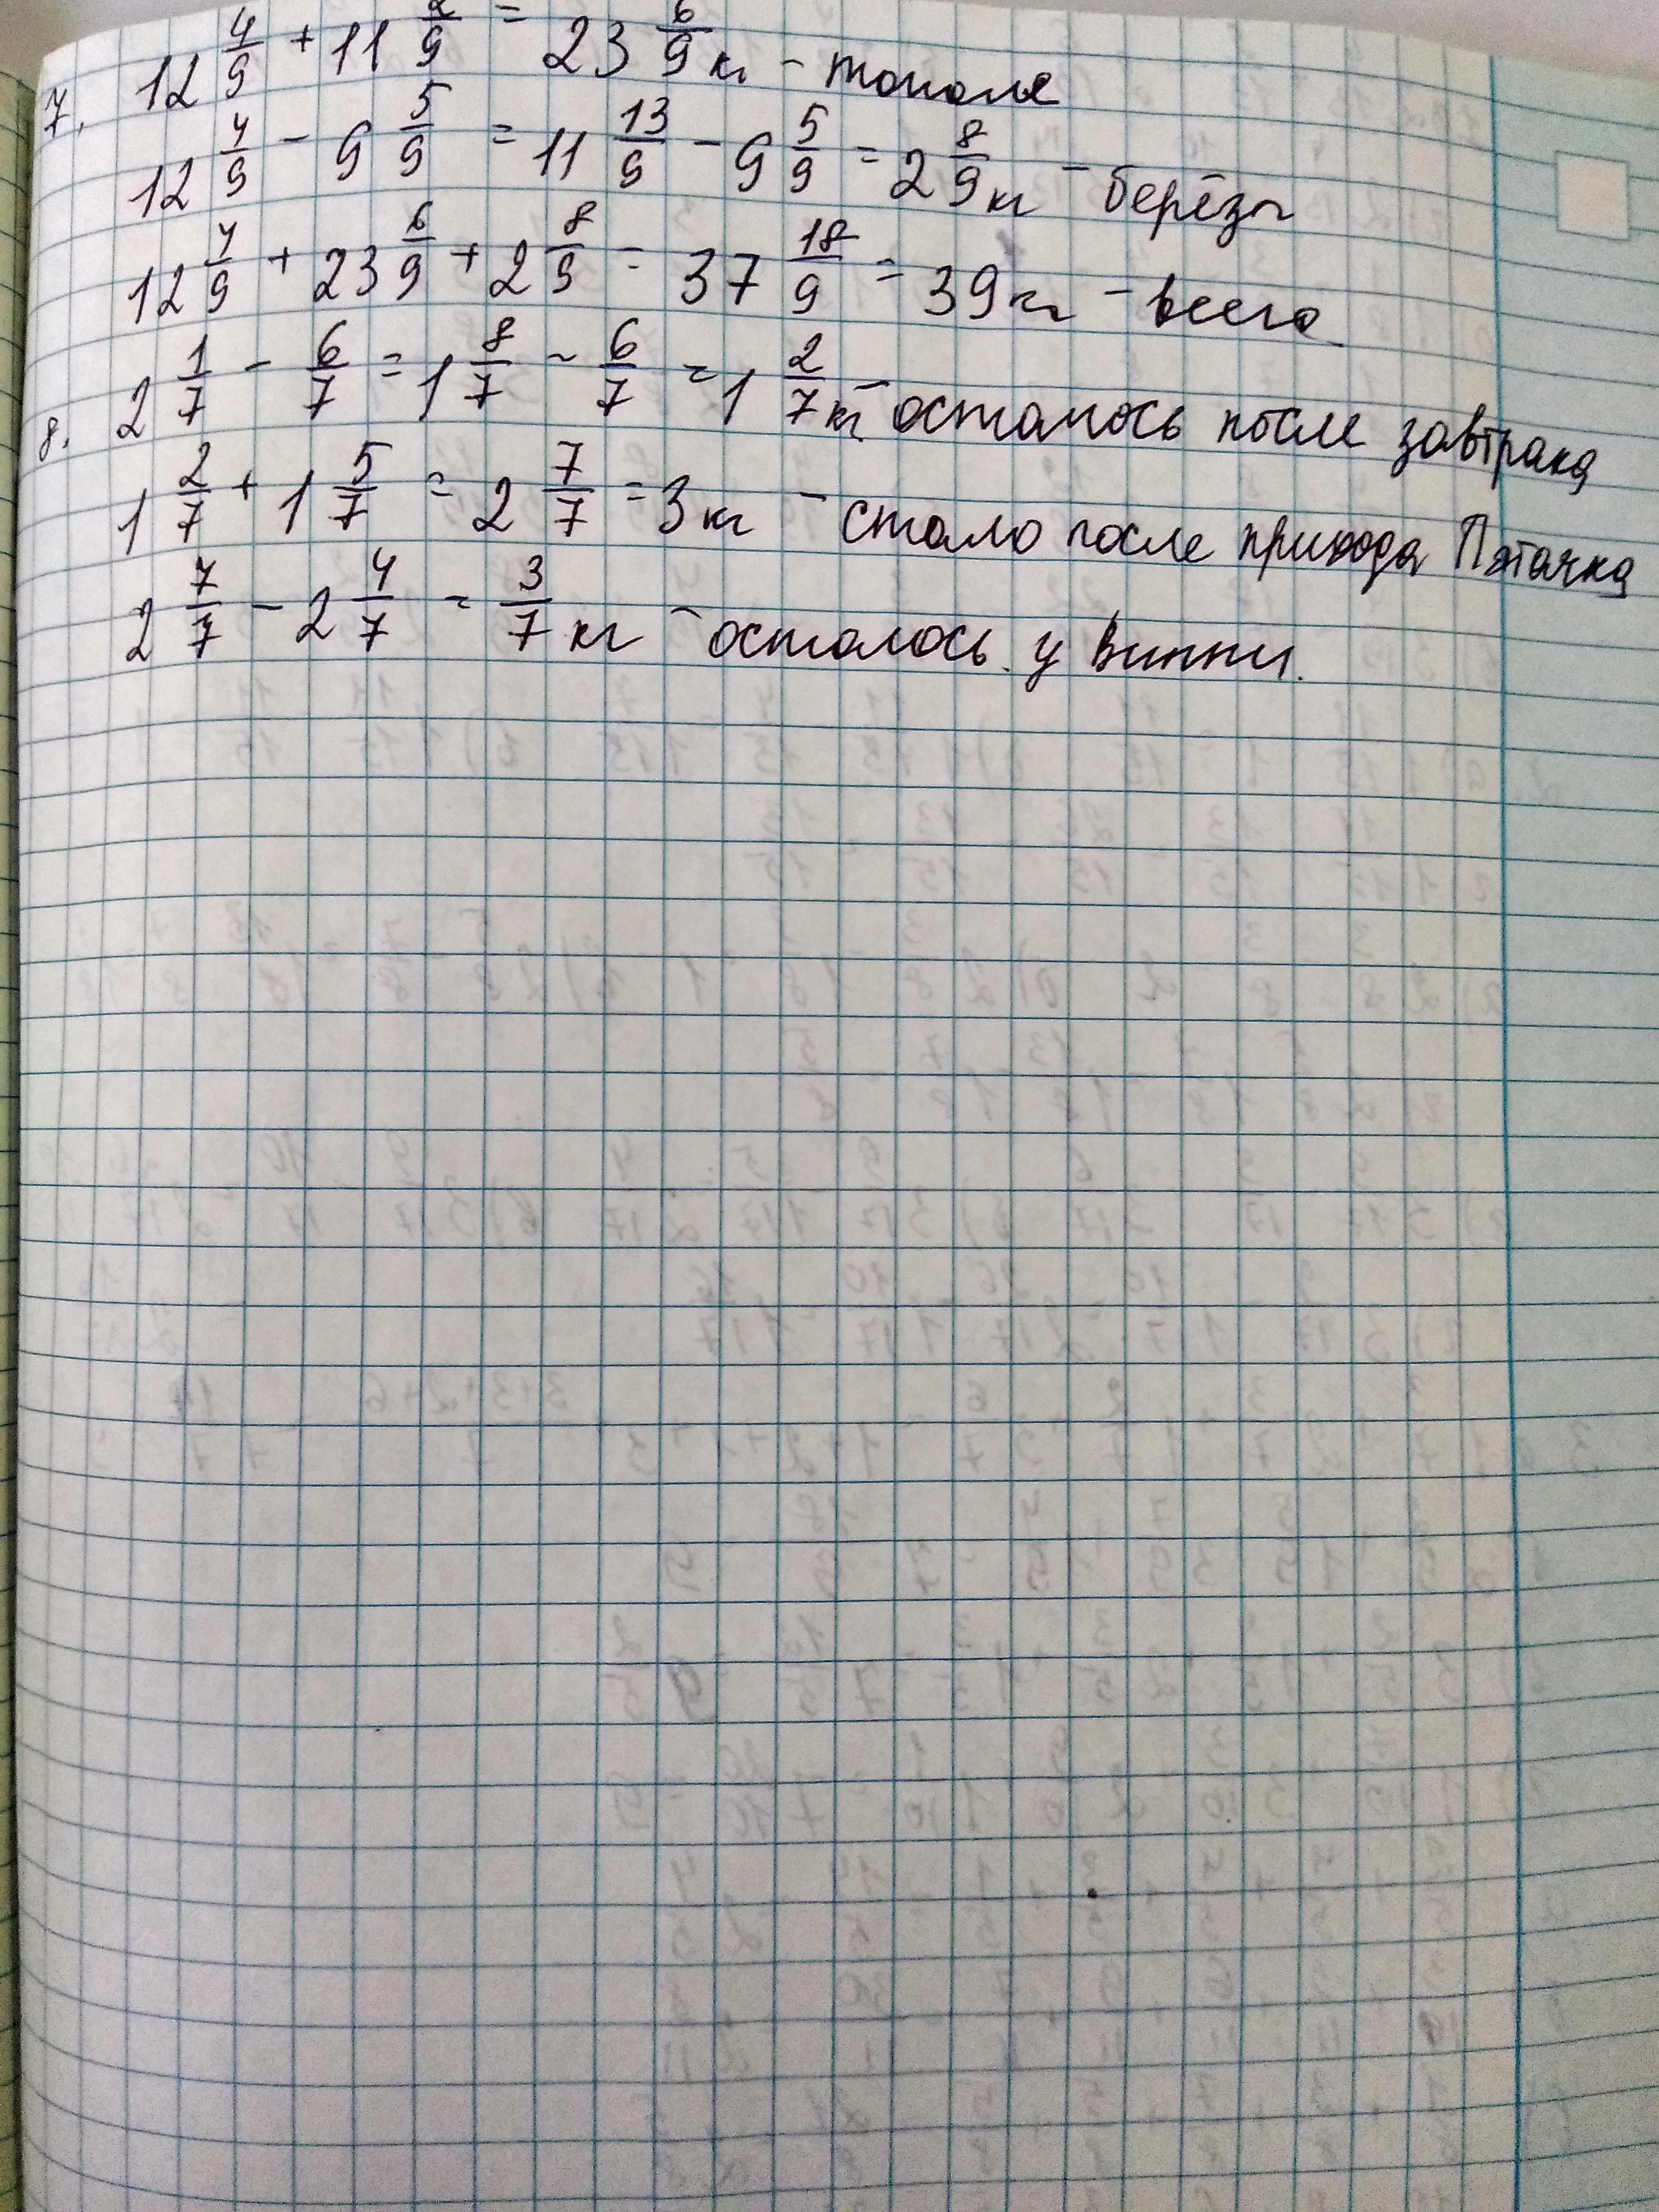 7. 12 4/9 + 11 2/9 = 23 6/9 кг - тополя
12 4/9 - 9 5/9 = 11 13/9 - 9 5/9 = 2 8/9 кг - берёзы
12 4/9 + 23 6/9 + 2 8/9 = 37 18/9 = 39 кг - всего
8. 2 1/7 - 6/7 = 1 8/7 - 6/7 = 1 2/7 кг - осталось после завтрака
1 2/7 + 1 5/7 = 2 7/7 = 3 кг - стало после прихода Пятачка
2 7/7 - 2 4/7 = 3/7 кг - осталось у Винни.